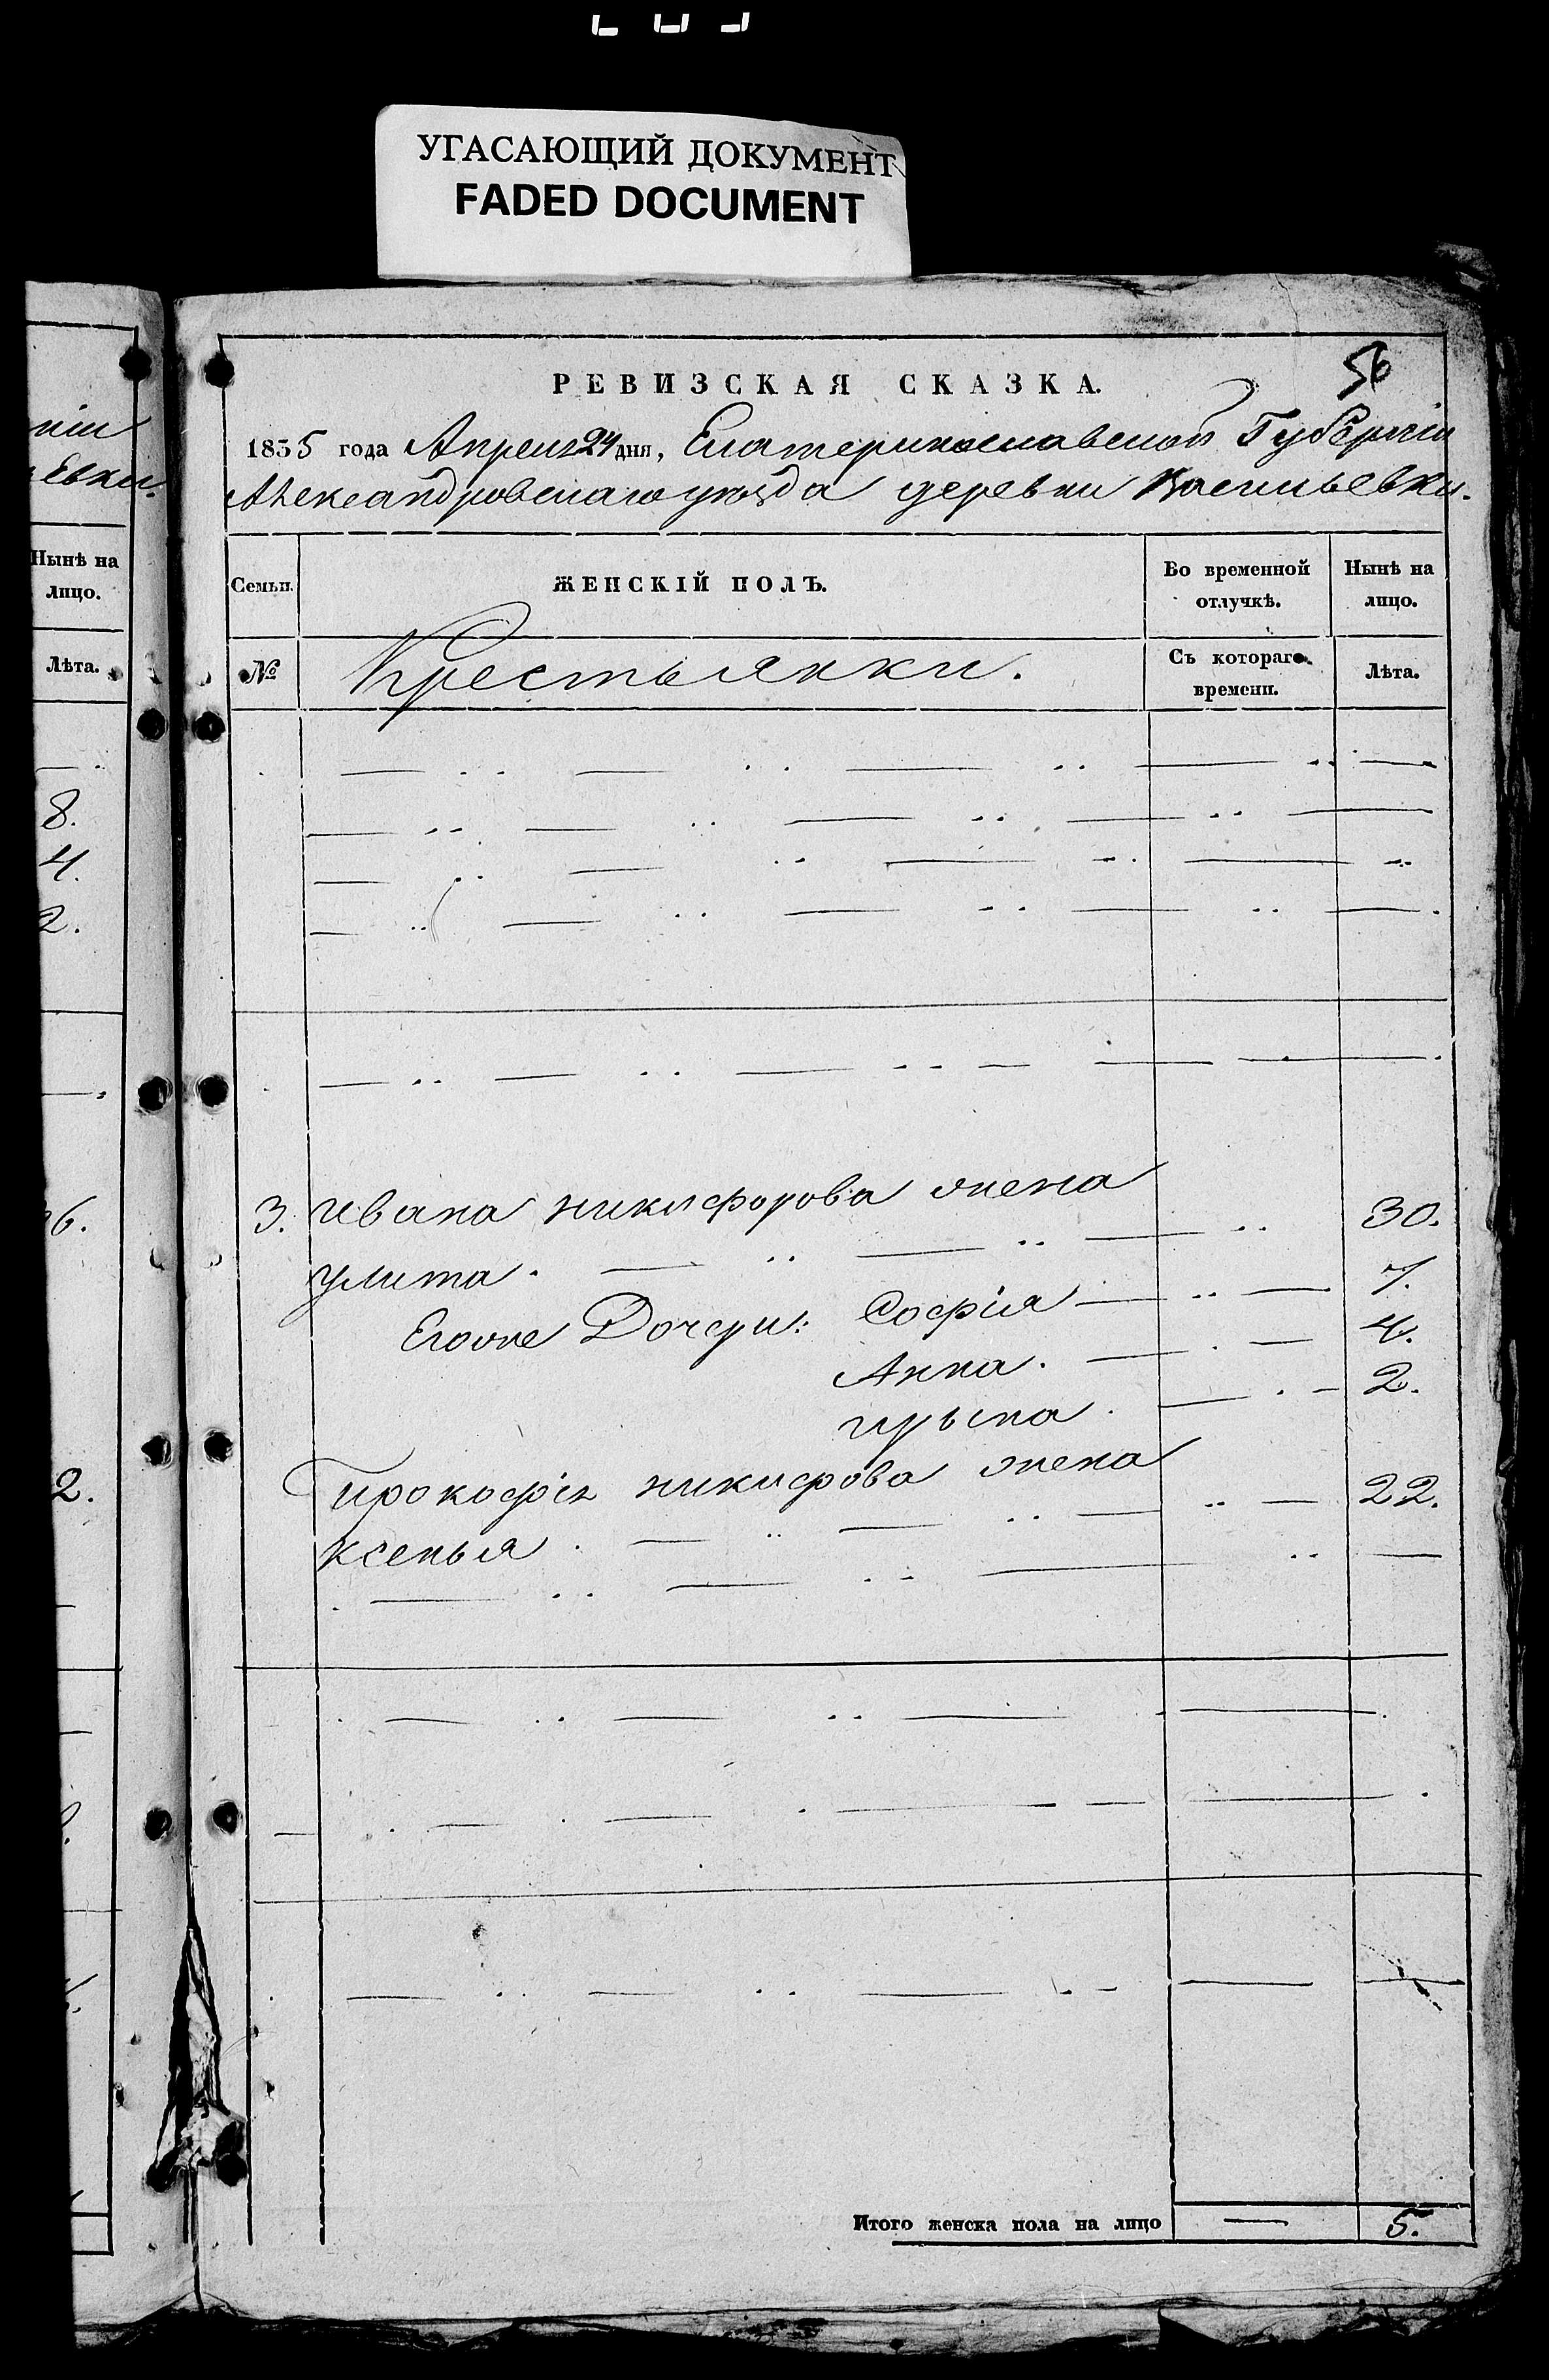 УГАСАЮЩИЙ ДОКУМЕНТ
FADED DOCUMENT
ніи
евки.
Нынѣ на
лицо.
Лѣта.
8.
4.
2.
6.
2.
56
РЕВИЗСКАЯ СКАЗКА.
1835 года Апреля 24 дня, Екатеринославской Губерніи
Александровскаго уезда деревни Васильевки.
Семьи.
ЖЕНСКІЙ ПОЛЪ.
Во временной
отлучкѣ.
Нынѣ на
лицо.
№
Крестьянки.
Съ котораго
времени.
Лѣта.
3. Ивана никифорова жена
улита. 30.
Егоже Дочери: Софія 7.
Анна. 4.
ирына. 2.
Прокофія никифрова жена
ксенья. 22.
Итого женска пола на лицо — 5.